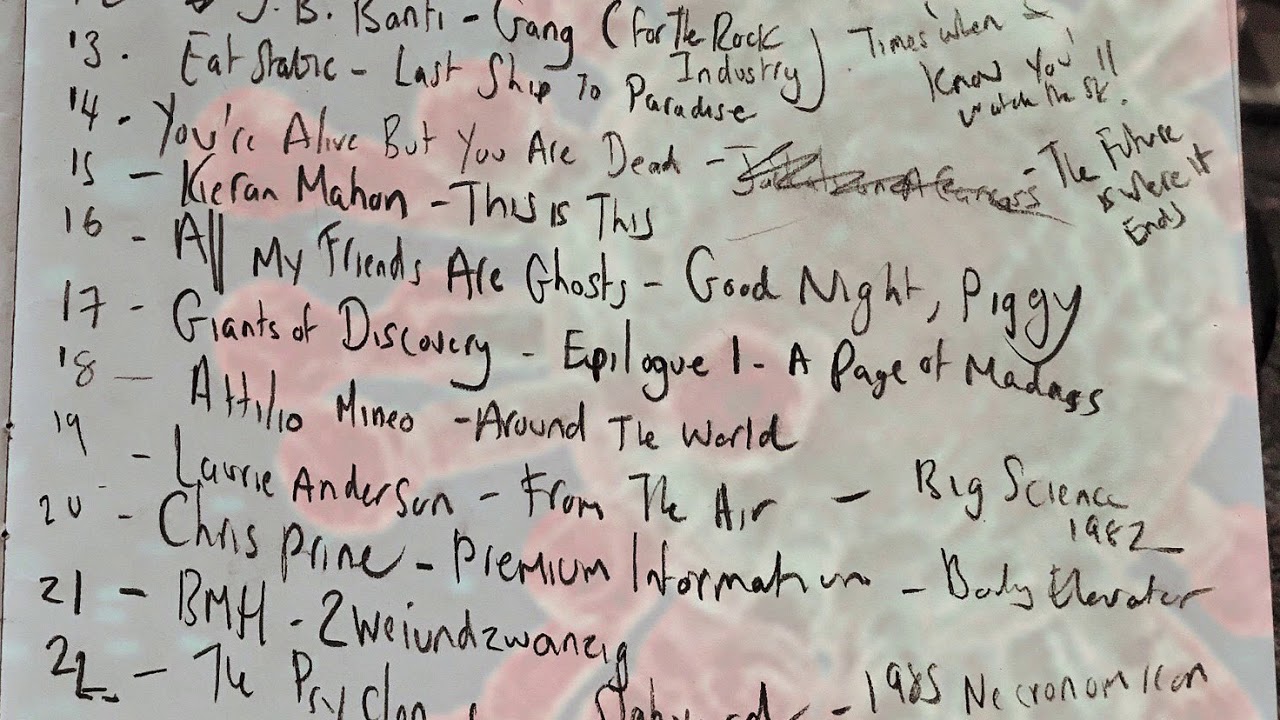 J.B. Banfi - Gang (For The Rock Industry)
Times when I know you'll watch the sk.
13. Eat Static - Last Ship To Paradise
14. You're Alive But You Are Dead - The Future is where it Ends
15 - Kieran Mahon - This is This
16 - All My Friends Are Ghosts - Good Night, Piggy
17 - Giants of Discovery - Epilogue 1 - A Page of Madness
18 - Attilio Mineo - Around The World
19 - Laurie Anderson - From The Air - Big Science 1982
20 - Chris Prine - Premium Information - Body Elevator
21 - BMH - Zweiundzwanzig
22 - The - 1985 Necronomicon